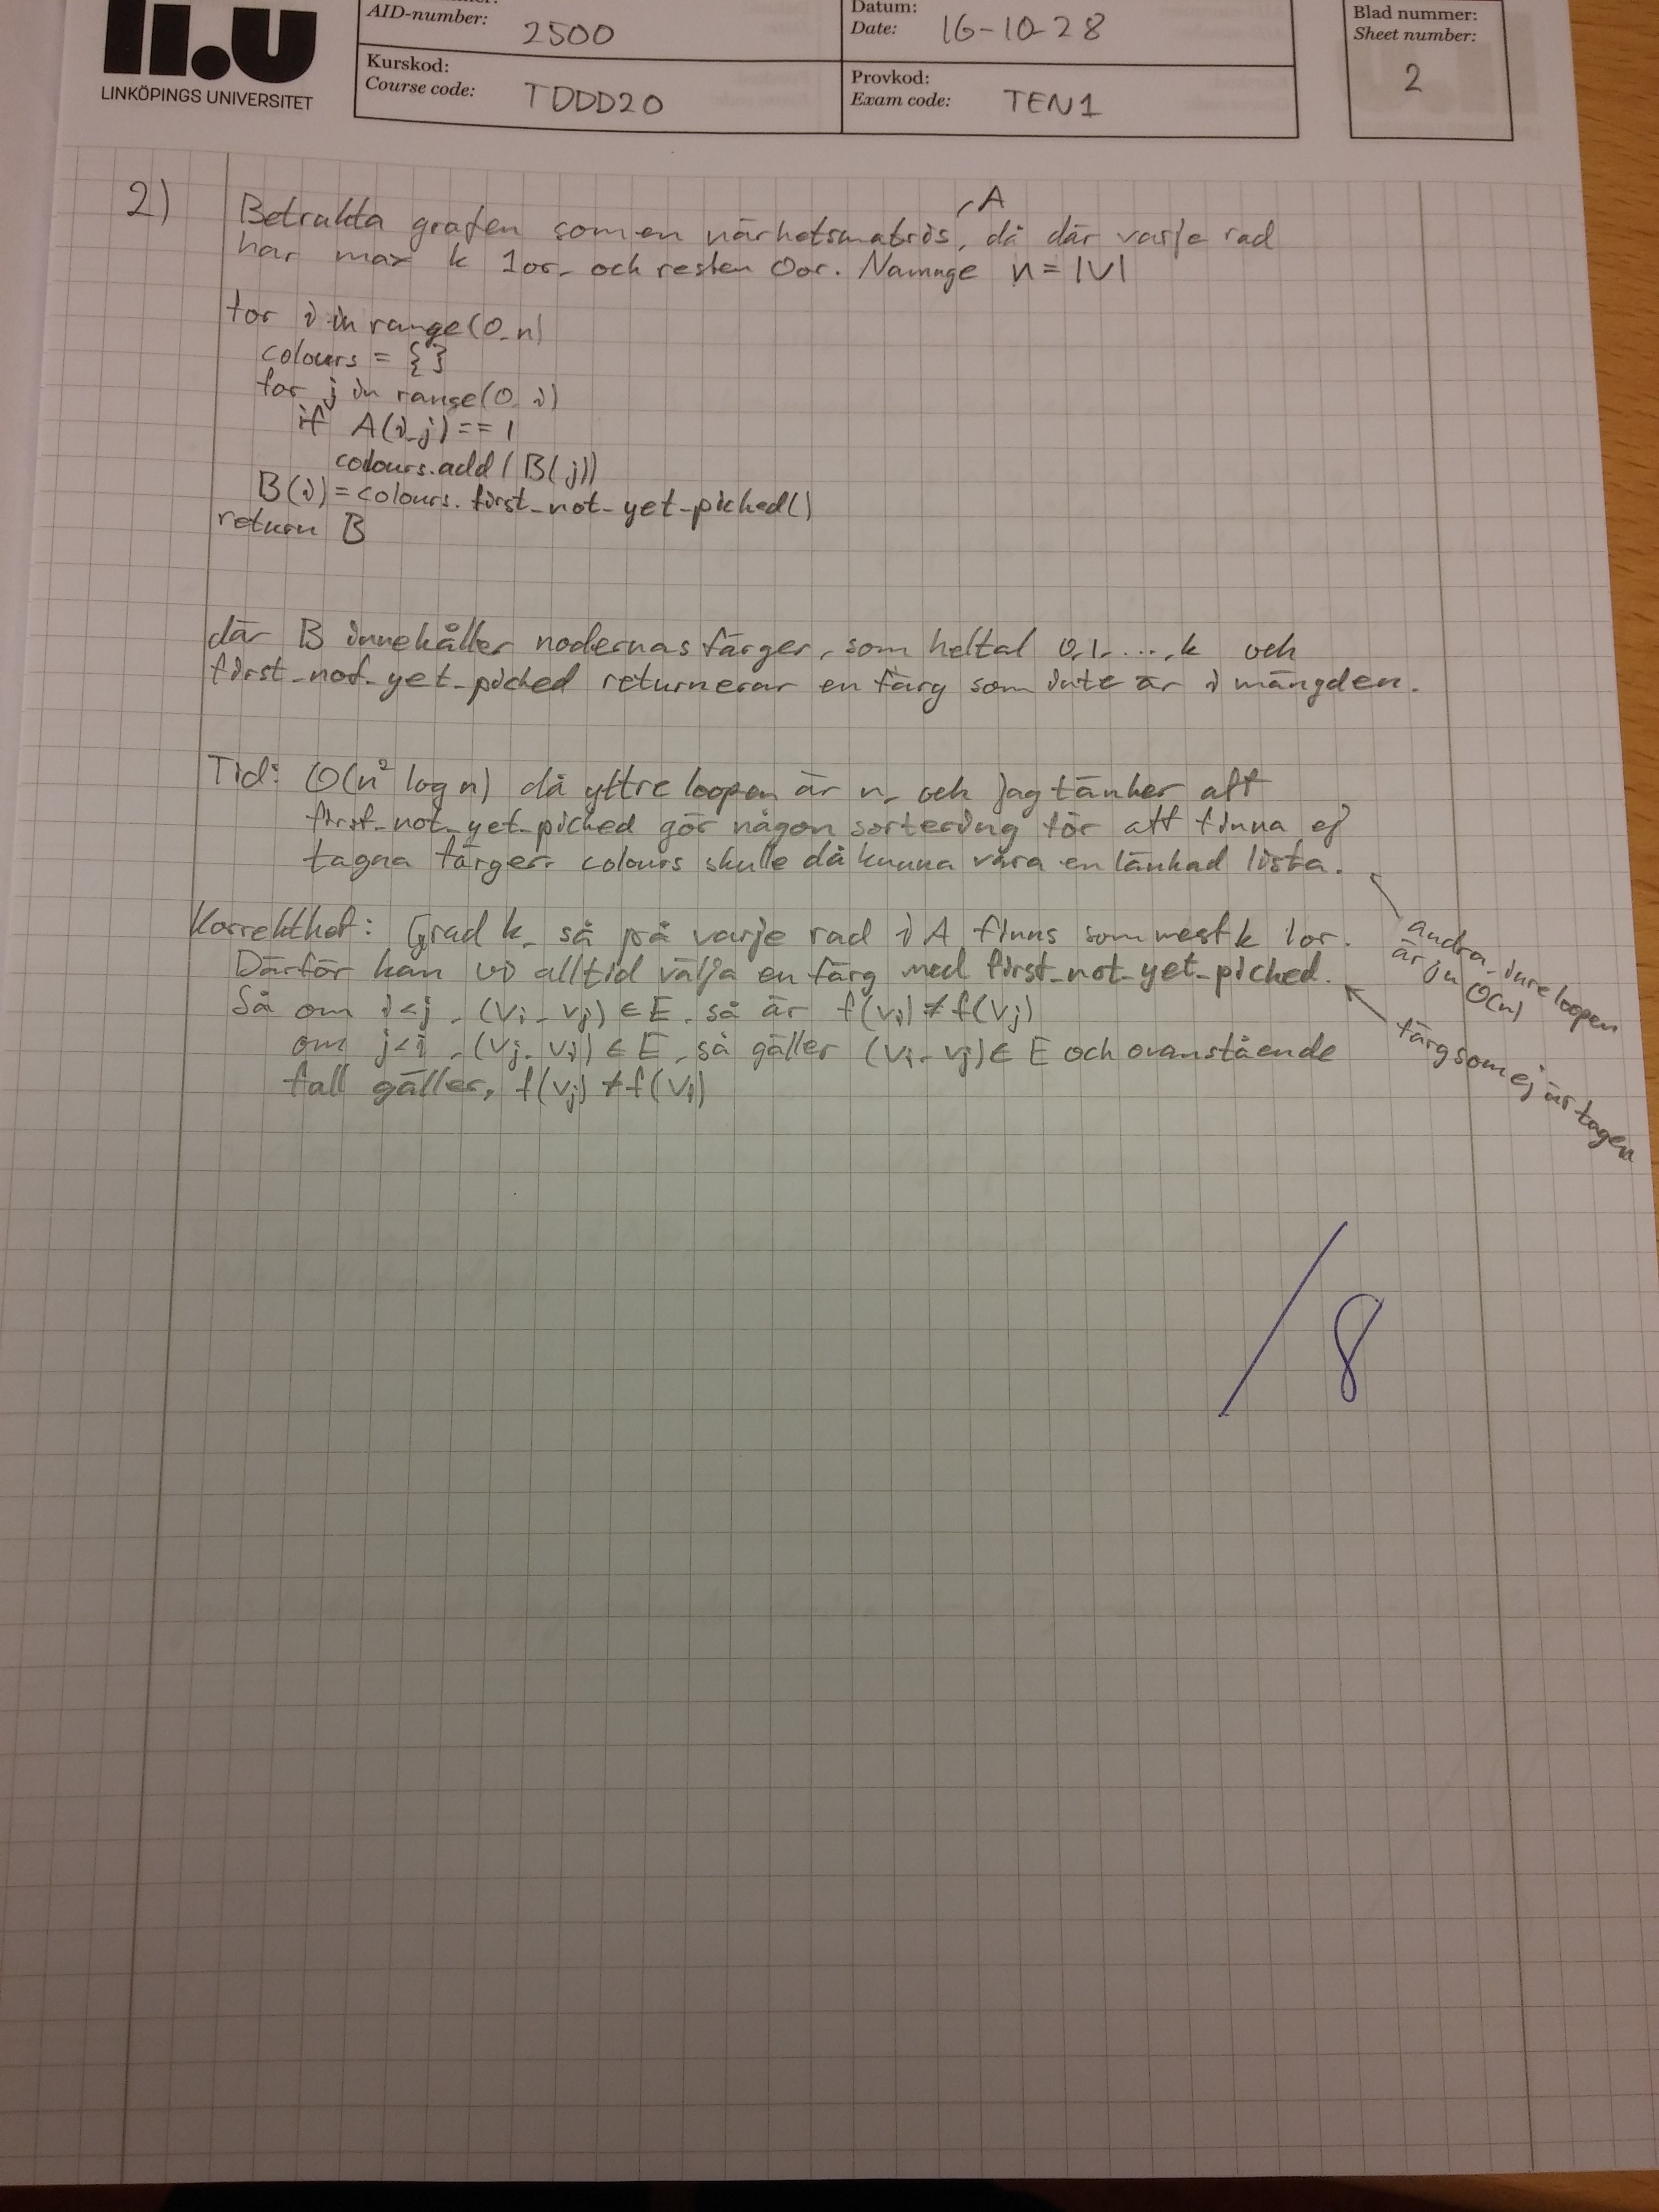 li.u
LINKÖPINGS UNIVERSITET
AID-number: 2500
Datum:
Date: 16-10-28
Blad nummer:
Sheet number:
2
Kurskod:
Course code: TDDD20
Provkod:
Exam code: TEN1
2)
, A
Betrakta grafen som en närhetsmatris, då där varje rad
har max k 1or, och resten 0or. Namnge n = |V|
for i in range(0,n)
colours = {}
for j in range(0,i)
if A(i,j) == 1
colours.add(B(j))
B(i) = colours.first_not_yet_picked()
return B
där B innehåller nodernas färger, som heltal 0,1,...,k och
first_not_yet_picked returnerar en färg som inte är i mängden.
Tid: O(n² log n) då yttre loopen är n, och jag tänker att
first_not_yet_picked gör någon sortering för att finna ej
tagna färger. colours skulle då kunna vara en länkad lista.
andra, inre loopen
är ju O(n)
Korrekthet: Grad k, så på varje rad i A finns som mest k 1or.
Därför kan vi alltid välja en färg med first_not_yet_picked.
färg som ej är tagen
Så om i<j, (vi, vj) ∈ E, så är f(vi) ≠ f(vj)
om j<i, (vj, vi) ∈ E, så gäller (vi, vj) ∈ E och ovanstående
fall gäller, f(vj) ≠ f(vi)
/ 8